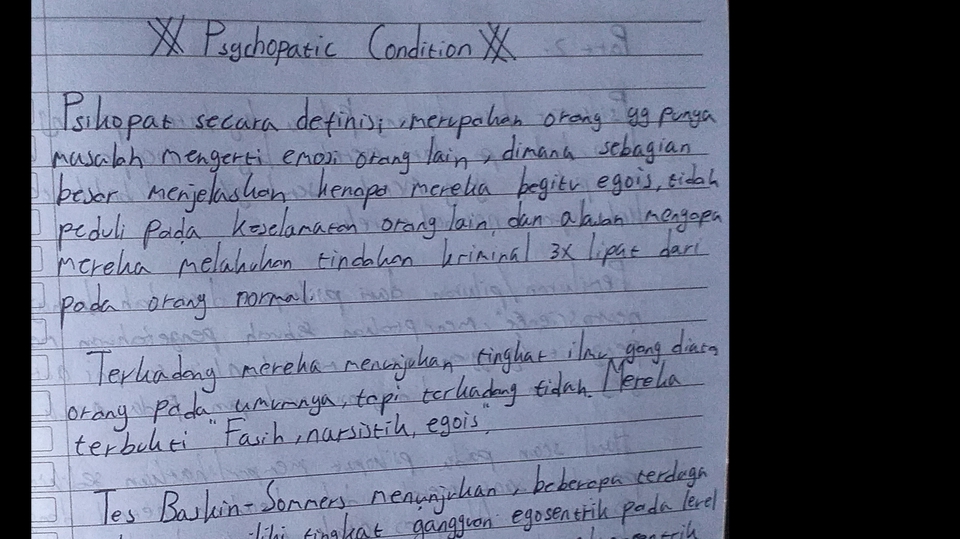 Psychopatic Condition
Psikopat secara definisi, merupakan orang yg punya
masalah mengerti emosi orang lain, dimana sebagian
besar menjelaskan kenapa mereka begitu egois, tidah
peduli pada keselamatan orang lain, dan alasan mengapa
mereka melakukan tindakan kriminal 3x lipat dari
pada orang normal.
Terkadang mereka menunjukan tingkat ilmu yang diatas
orang pada umumnya, tapi terkadang tidak. Mereka
terbukti "Fasih, narsistik, egois".
Tes Baskin-Sommers menunjukan, beberapa terduga
tingkat gangguan egosentrik pada level